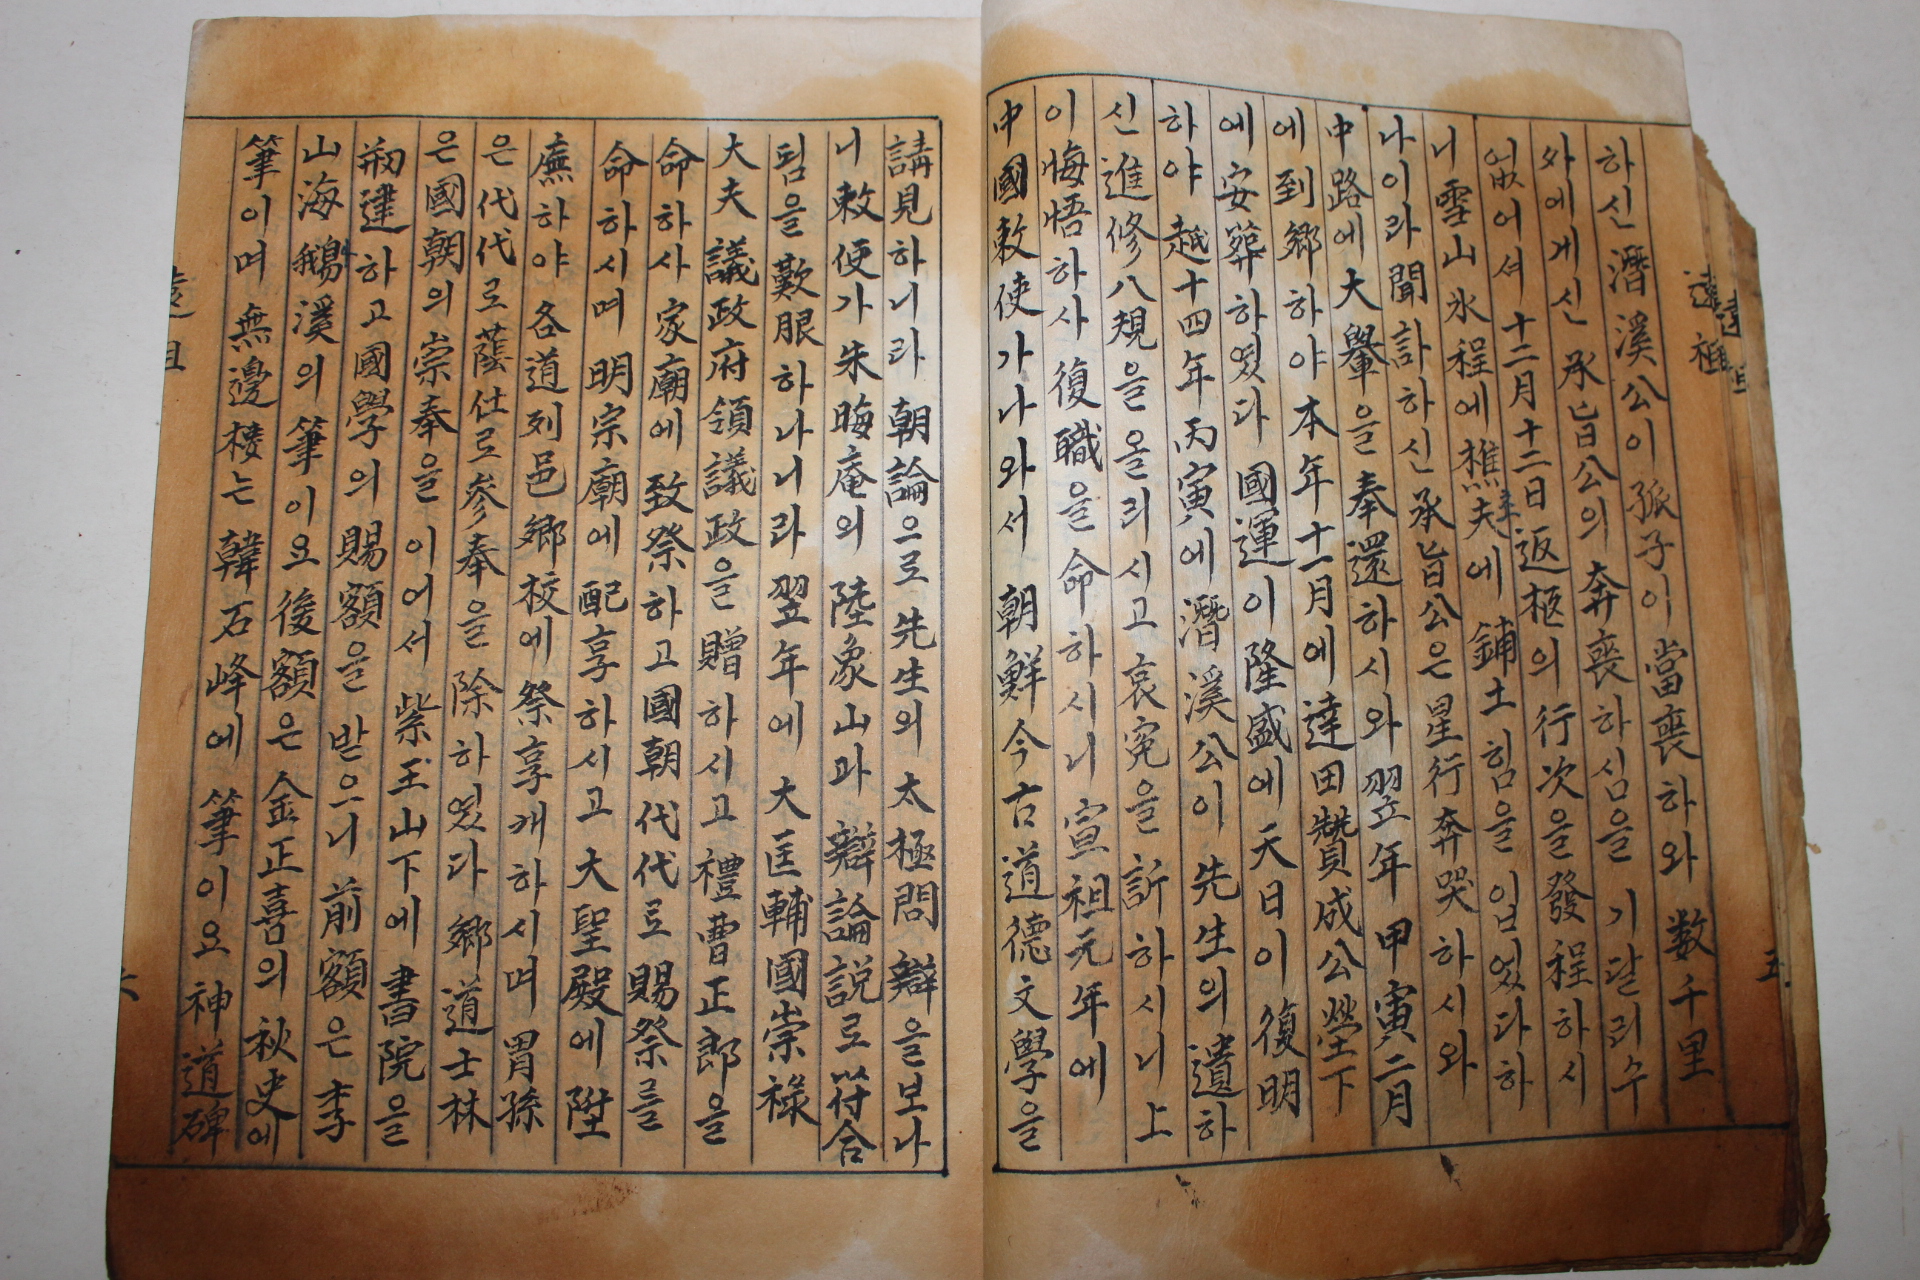 하신 潛溪公이 孤子이 當喪하와 数千里
外에게신 承旨公의 奔喪하심을 기달리수
없어셔 十二月十二日 返柩의 行次을 發程하시
니 雪山氷程에 樵夫에 鋪土힘을 입엇다하
나이라 聞訃하신 承旨公은 星行奔哭하시와
中路에 大轝을 奉還하시와 翌年 甲寅二月
에 到鄕하야 本年十一月에 達田贊成公塋下
에 安葬하엿다 國運이 隆盛에 天日이 復明
하야 越十四年丙寅에 潛溪公이 先生의 遺하
신 進修八規을 올리시고 哀寃을 訴하시니 上
이 悔悟하사 復職을 命하시니 宣祖元年에
中國敕使가 나와서 朝鮮今古道德文學을
講見하니라 朝論으로 先生의 太極問辯을보나
니 敕使가 朱晦庵의 陸象山과 辯論說로 符合
됨을 歎服하나니라 翌年에 大匡輔國崇祿
大夫議政府領議政을 贈하시고 禮曹正郎을
命하사 家廟에 致祭하고 國朝代代로 賜祭를
命하시며 明宗廟에 配享하시고 大聖殿에 陞
廡하야 各道列邑鄕校에 祭享케하시며 胃孫
은 代代로 蔭仕로 參奉을 除하엿다 鄕道士林
은 國朝의 崇奉을 이어서 紫玉山下에 書院을
刱建하고 國學의 賜額을 받으니 前額은 李
山海鵝溪의 筆이요 後額은 金正喜의 秋史에
筆이며 無邊樓는 韓石峰에 筆이요 神道碑
遠祖
五
六